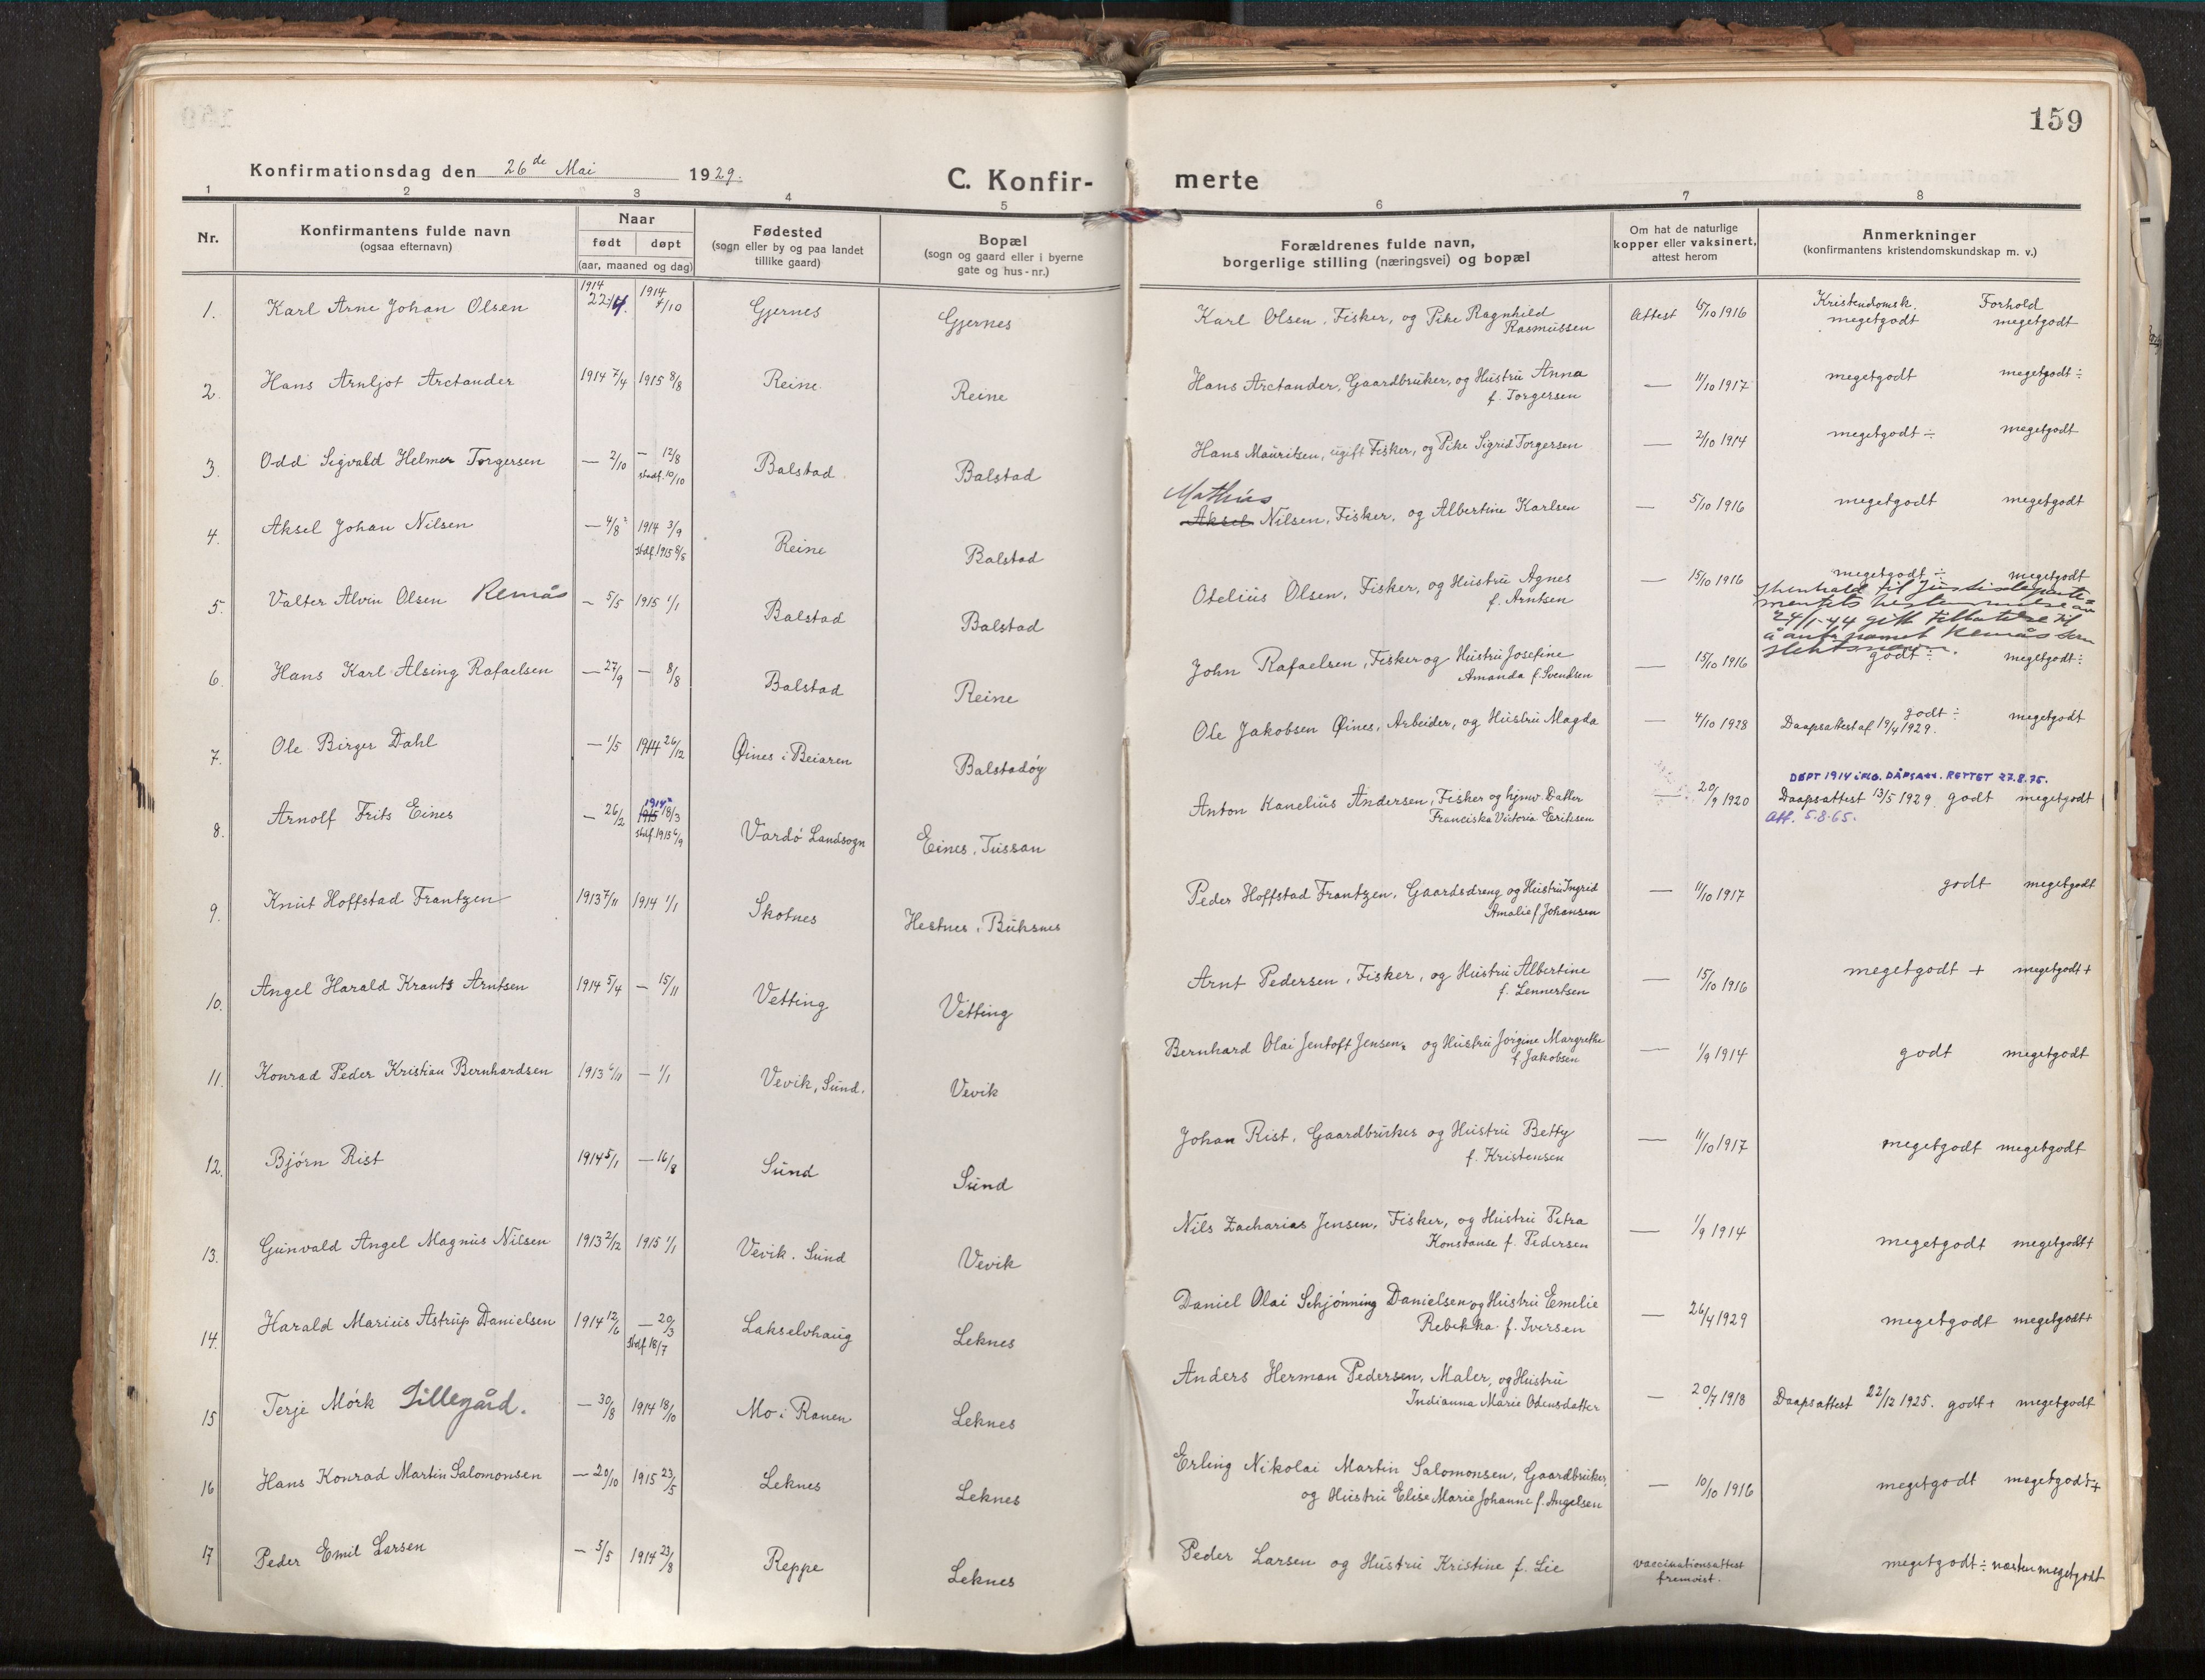 159
Konfirmationsdag den 26de Mai 1929.
C. Konfir-merte
1 2 3 4 5 6 7 8
Nr.
Konfirmantens fulde navn
(ogsaa efternavn)
Naar
født døpt
(aar, maaned og dag)
Fødested
(sogn eller by og paa landet
tillike gaard)
Bopæl
(sogn og gaard eller i byerne
gate og hus-nr.)
Forældrenes fulde navn,
borgerlige stilling (næringsvei) og bopæl
Om hat de naturlige
kopper eller vaksinert,
attest herom
Anmerkninger
(konfirmantens kristendomskundskap m. v.)
Kristendomsk. Forhold
1. Karl Arne Johan Olsen 1914 22/4. 1914 4/10 Gjernes Gjernes Karl Olsen, Fisker, og Pike Ragnhild
Rasmussen Attest 15/10 1916 megetgodt megetgodt
2. Hans Arnljot Arctander 1914 7/4 1915 8/8 Reine Reine Hans Arctander, Gaardbruker, og Hustru Anna
f. Torgersen — 11/10 1917 megetgodt megetgodt ÷
3. Odd Sigvald Helmer Torgersen — 2/10 — 12/8
stadf. 10/10 Balstad Balstad Hans Mauritsen, ugift Fisker, og Pike Sigrid Torgersen — 2/10 1914 megetgodt ÷ megetgodt
Mathias
4. Aksel Johan Nilsen — 4/8 1914 3/9
stdf. 1915 8/8 Reine Balstad Aksel Nilsen, Fisker, og Albertine Karlsen — 5/10 1916 megetgodt megetgodt
5. Valter Alvin Olsen Remås — 5/5 1915 1/1 Balstad Balstad Otelius Olsen, Fisker, og Hustru Agnes
f. Arntsen — 15/10 1916 megetgodt ÷ megetgodt
I henhold til Justisdeparte=
mentets bestemmelse av
24/1-44 gitt tillatelse til
å anta navnet Remås som
slektsnavn.
6. Hans Karl Alsing Rafaelsen — 27/9 — 8/8 Balstad Reine John Rafaelsen, Fisker og Hustru Josefine
Amanda f. Svendsen — 15/10 1916 godt ÷ megetgodt ÷
7. Ole Birger Dahl — 1/5 1914 26/12 Øines i Beiaren Balstadøy Ole Jakobsen Øines, Arbeider, og Hustru Magda — 4/10 1928 godt ÷ megetgodt
Daapsattest af 19/4 1929.
DØPT 1914 iflg. DÅPSATT. RETTET 27.8.75.
8. Arnolf Frits Eines — 26/2 1914 1915 18/3
stdf. 1915 6/9 Vardö Landsogn Eines, Tussan Anton Kanelius Andersen, Fisker og hjmv. Datter
Franciska Victoria Eriksen — 20/9 1920 Daapsattest 13/5 1929. godt megetgodt
Att. 5.8.65.
9. Knut Hoffstad Frantzen 1913 7/11 1914 1/1 Skotnes Hestnes i Buksnes Peder Hoffstad Frantzen, Gaardsdreng og Hustru Ingrid
Amalie f. Johansen — 11/10 1917 godt megetgodt
10. Angel Harald Krants Arntsen 1914 5/4 — 15/11 Vetting Vetting Arnt Pedersen, Fisker, og Hustru Albertine
f. Lennertsen — 15/10 1916 megetgodt + megetgodt +
11. Konrad Peder Kristian Bernhardsen 1913 6/11 — 1/1 Vevik, Sund. Vevik Bernhard Olai Jentoft Jensen, og Hustru Jörgine Margrethe
f. Jakobsen — 1/9 1914 godt megetgodt
12. Bjórn Rist 1914 5/1 — 16/8 Sund Sund Johan Rist, Gaardbruker og Hustru Betty
f. Kristensen — 11/10 1917 megetgodt megetgodt
13. Gunvald Angel Magnus Nilsen 1913 2/12 1915 1/1 Vevik. Sund Vevik Nils Zacharias Jensen, Fisker, og Hustru Petra
Konstanse f. Pedersen — 1/9 1914 megetgodt megetgodt+
14. Harald Marius Astrup Danielsen 1914 12/6 — 20/3
stdf. 18/7 Lakselvhaug Leknes Daniel Olai Schjónning Danielsen og Hustru Emelie
Rebekka f. Iversen — 26/4 1929 megetgodt megetgodt+
15 Terje Mórk Lillegård. — 30/8 1914 18/10 Mo i Ranen Leknes Anders Herman Pedersen, Maler, og Hustru
Indianna Marie Odensdatter — 20/7 1918 Daapsattest 22/12 1925. godt + megetgodt
16 Hans Konrad Martin Salomonsen — 20/10 1915 23/5 Leknes Leknes Erling Nikolai Martin Salomonsen, Gaardbruker,
og Hustru Elise Marie Johanne f. Angelsen — 10/10 1916 megetgodt megetgodt+
17 Peder Emil Larsen — 5/5 1914 23/8 Reppe Leknes Peder Larsen og Hustru Kristine f. Lie vaccinationsattest
fremvist. megetgodt ÷ næsten megetgodt